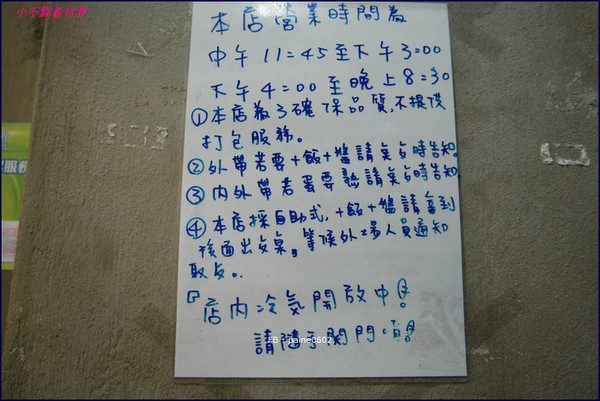 小不點看世界
本店營業時間為
中午 11:45至下午3:00
下午4:00至晚上8:30
①本店為了確保品質,不提供
打包服務。
②外帶若要+飯+醬請點餐時告知。
③內外帶若蛋要熟請點餐時告知
④本店採自助式,+飯+醬請拿到
後面出餐桌,等候外場人員通知
取餐。
店內冷氣開放中!
請隨手關門
FB:naine0602
服務